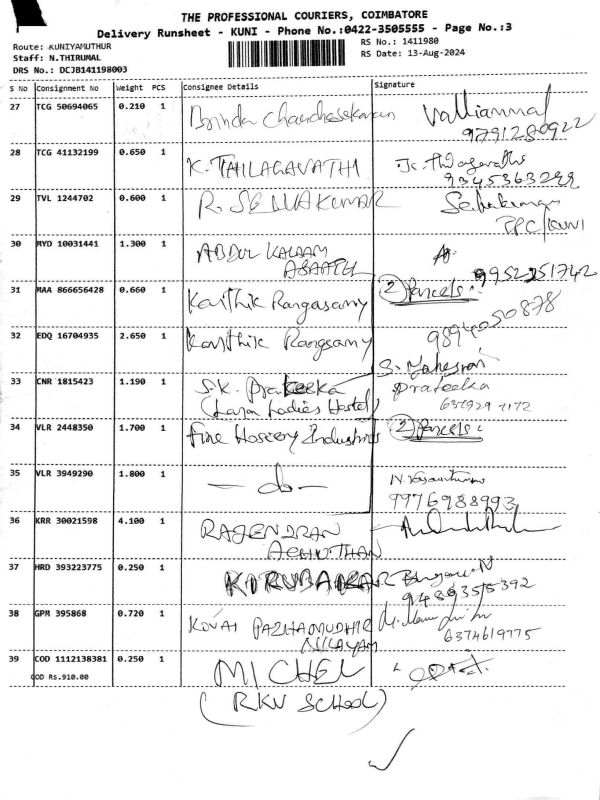 THE PROFESSIONAL COURIERS, COIMBATORE
Delivery Runsheet - KUNI - Phone No.:0422-3505555 - Page No.:3
Route: KUNIYAMUTHUR
RS No.: 1411980
Staff: N.THIRUMAL
RS Date: 13-Aug-2024
DRS No.: DCJB141198003
S No Consignment No Weight PCS Consignee Details Signature
27 TCG 50694065 0.210 1 Brinda Chandrasekaran Valliammal
9791280922
28 TCG 41132199 0.650 1 K. THILAGAVATHI K. Thilagavathi
9345363298
29 TVL 1244702 0.600 1 R. SELVAKUMAR Selvakumar
TPC/KUNI
30 MYD 10031441 1.300 1 ABDUL KALAAM
9952251742
31 MAA 866656428 0.660 1 Karthik Rangasamy 2 Parcels:
9894050878
32 EDQ 16704935 2.650 1 Karthik Rangsamy
33 CNR 1815423 1.190 1 S.K. Prateeka Prateeka
( Ladies Hostel)
34 VLR 2448350 1.700 1 Fine Hoseery Industries 2 Parcels:
35 VLR 3949290 1.800 1 — do —
9976988993
36 KRR 30021598 4.100 1 RAJENDRAN
ACHUTHAN
37 HRD 393223775 0.250 1 KIRUBAKAR
9489355392
38 GPM 395868 0.720 1 KOVAI PAZHAMUDHIR
NILAYAM 6374619775
39 COD 1112138381 0.250 1 MICHEL
COD Rs.910.00
(RKV SCHOOL)